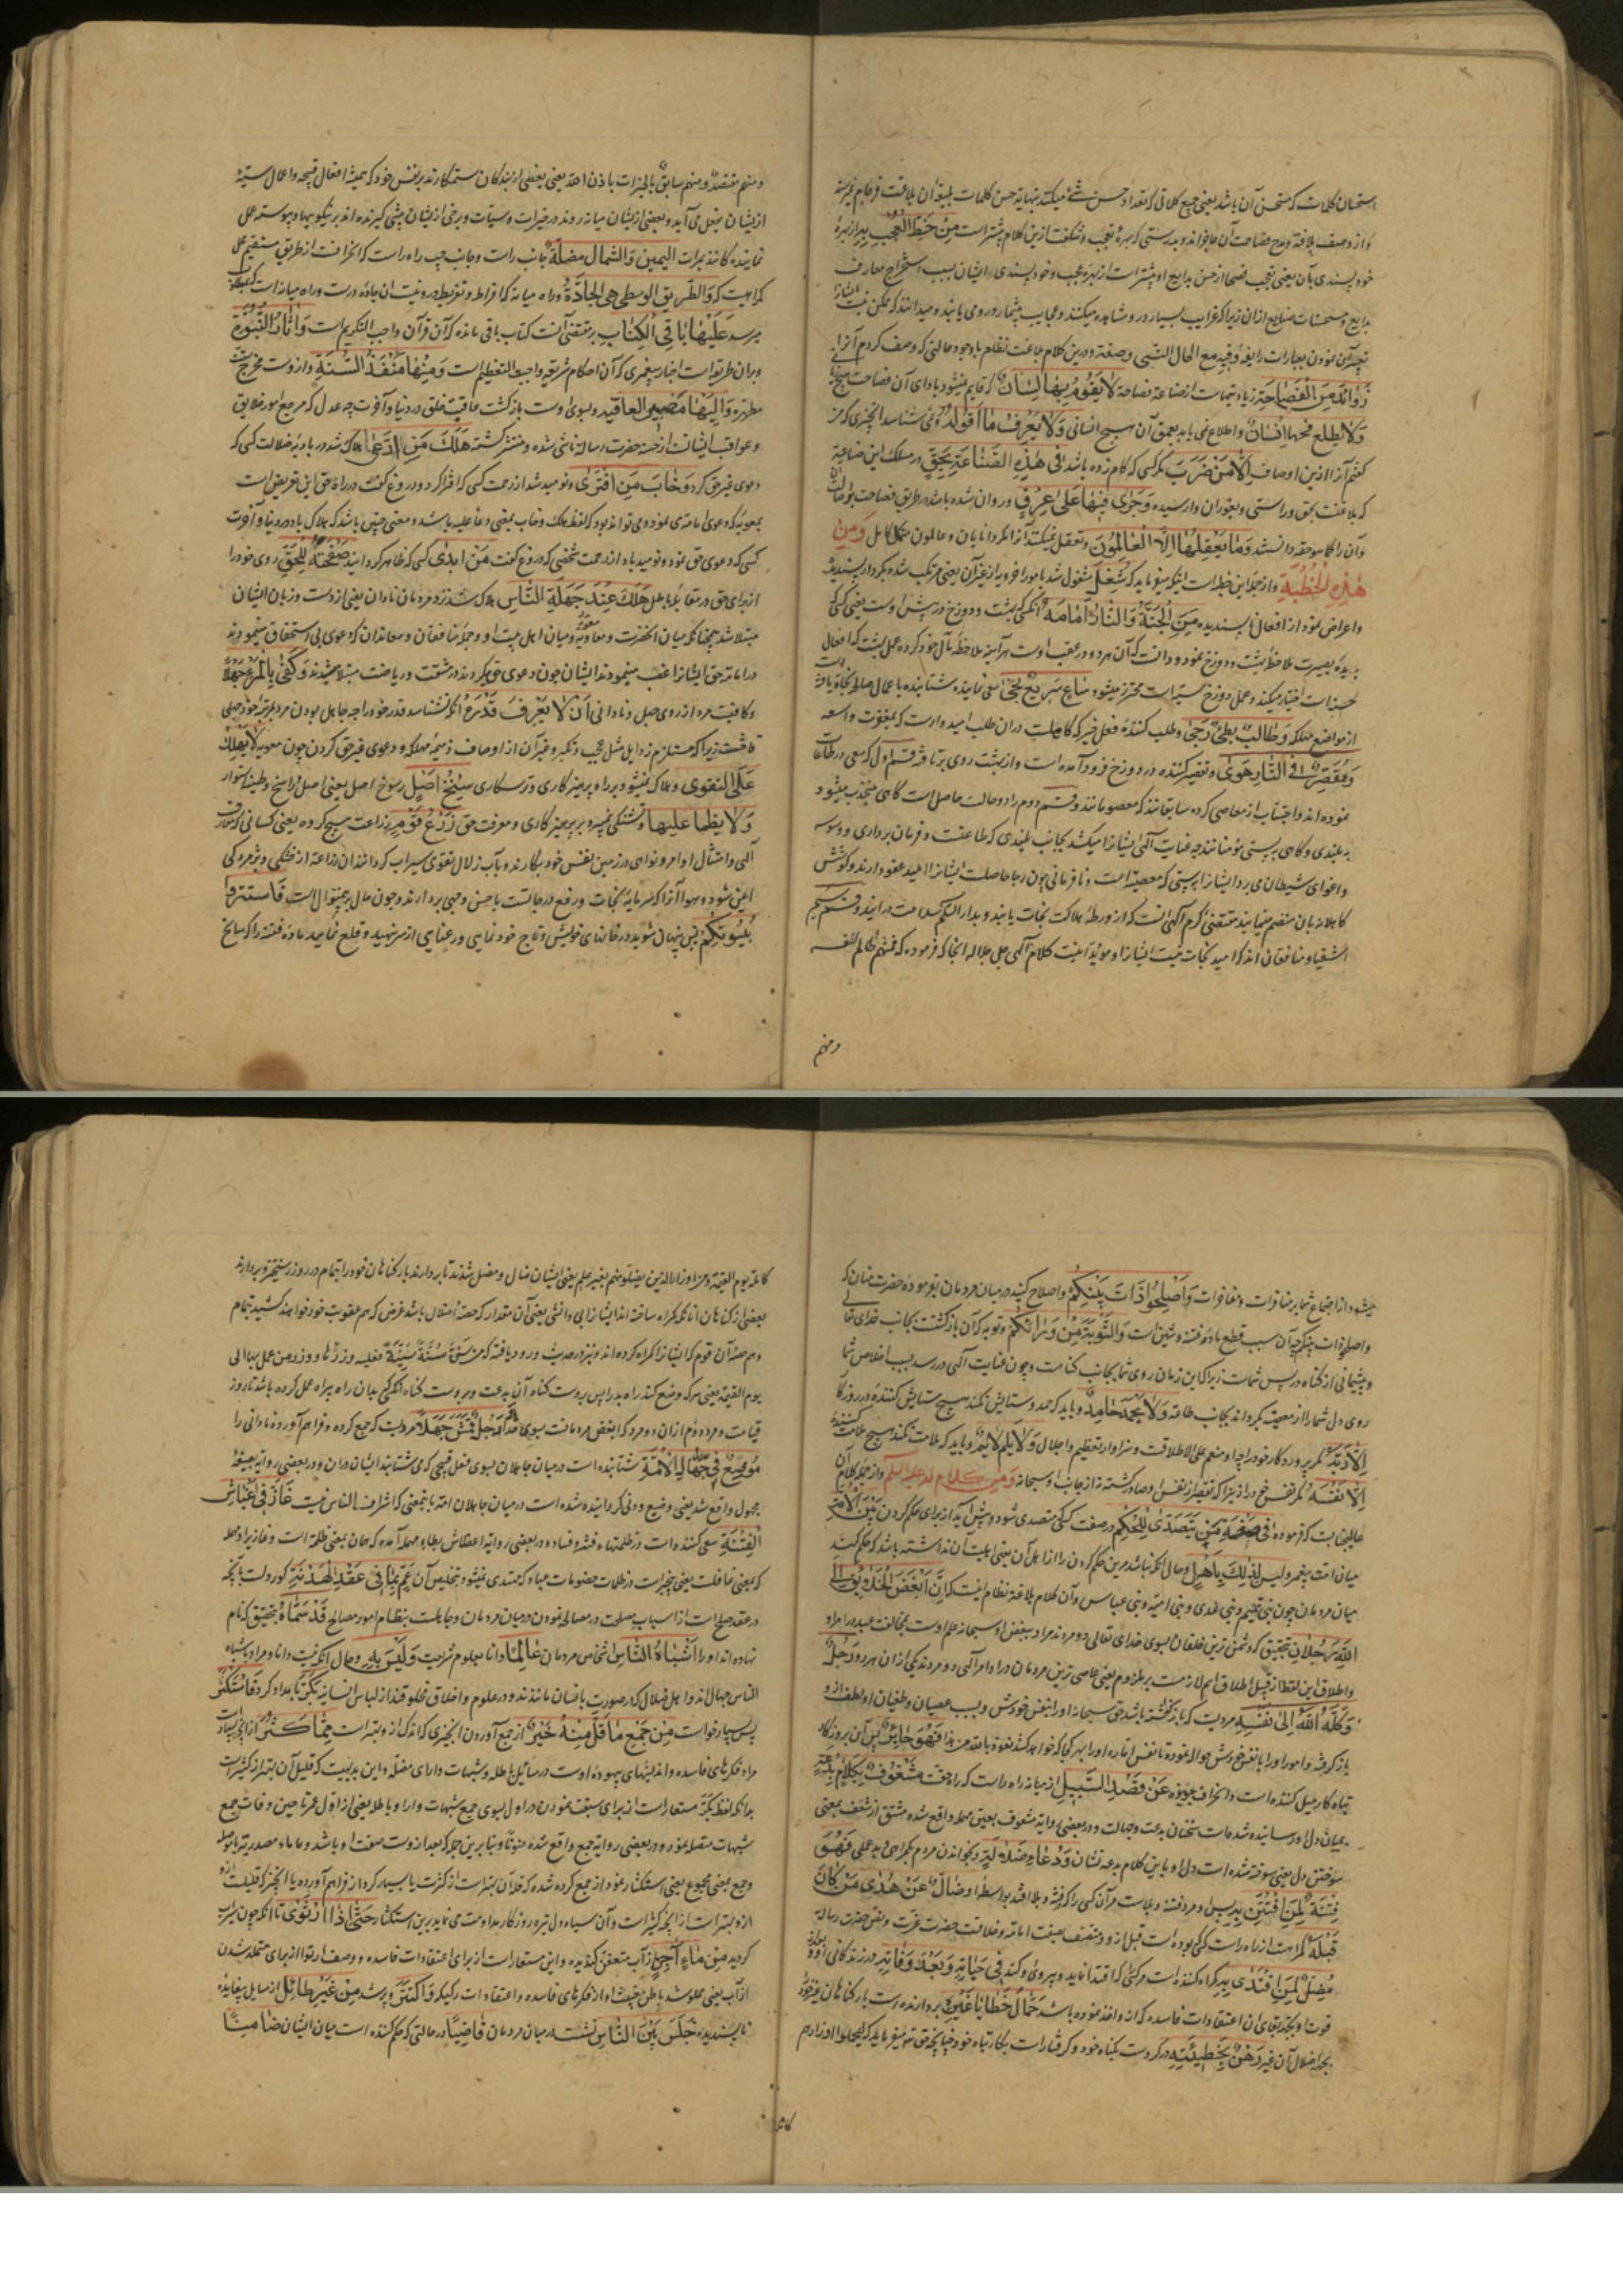 استحسان کلمات که مستحسن آن باشد یعنی جمیع کلماتی که تعداد حسن شئ میکنند بنهایة حسن کلمات بلیغه آن بلاغت فرجام نمیرسد
و از وصف بلاغة و مدح فصاحت آن عاجزاند و بدرستی که بهرهٔ تعجب و شگفت ازین کلام بیشتر است مِن حَظِّ العُجبِ بِهِ از بهرهٔ
خود پسندی بآن یعنی تعجب فصحا از حسن بدایع او بیشتر است از بهرهٔ عجب و خود پسندی ایشان بسبب استخراج معارف
بدایع و مستحسنات صنایع ازان زیرا که غرایب بسیار درو مشاهده میکنند و عجایب بیشمار درو می یابند و میدانند که ممکن نیست ایشانرا
تعبیر آن نمودن بعبارات رایقه وَفیهِ مع الحال الّتی وصفتُ و درین کلام بلاغت نظام با وجود حالتی که وصف کردم آنرا
زَوائدُ مِنَ الفَصاحَةِ زیادتیهاست از صناعة فصاحة لا یَقومُ بِها لِسانٌ که قایم نمیشود باداء آن فصاحت هیچ زبانی
وَلا یَطّلِعُ فَجَّها اِنسانٌ و اطلاع نمی یابد بعمق آن هیچ انسانی وَلا یَعرِفُ ما اَقولُهُ و نمی شناسد آنچیزی که من
گفتم آنرا ازین اوصاف اِلّا مَن ضَرَبَ مگر کسی که گام زده باشد فی هٰذِهِ الصِّناعَةِ بِحَقٍّ در مسلک این صناعة
که بلاغت بحق و راستی و بغور آن وارسیده وَجَرٰی فیها عَلٰی عِرقٍ و روان شده باشد در طریق فصاحت بر اصالت
و آن را کما هو حقه دانسته وَما یَعقِلُها اِلَّا العالِمونَ و تعقل نمیکند آنرا مگر دانایان و عالمان متکامل وَمِن
هٰذِهِ الخُطبَةِ و از جمله این خطبه است اینکه میفرماید که شُغِلَ مشغول شد بامور اخرویه از غیر آن یعنی مرتکب شد بکردار پسندیده
و اعراض نمود از افعال ناپسندیده مَنِ الجَنَّةُ وَالنّارُ اَمامَهُ آنکس که بهشت و دوزخ در پیش اوست یعنی کسی که
بدیدهٔ بصیرت ملاحظهٔ بهشت و دوزخ نمود و دانست که آن هر دو در عقب اوست هرآینه ملاحظهٔ مآل خود کرده عمل بهشت که افعال
حسنه است اختیار میکند و عمل دوزخ سیئه است محترز میشود ساعٍ سَریعٌ نَجٰی سعی نماینده شتابنده باعمال صالحه نجات یافت
از مواضع مهلکه وَطالِبٌ بَطیءٌ رَجٰی و طلب کنندهٔ فعل خیر که کاهلست دران طلب امیدوارست که بمغفرت واسعه
وَمُقَصِّرٌ فِی النّارِ هَوٰی و تقصیر کننده در دوزخ فرود آمده است و از بهشت روی برتافته قسم اول که سعی در طاعت
نموده اند و اجتناب از معاصی کرده سابقانند که معصومانند و قسم دوم را دو حالت حاصل است گاهی منجذب میشود
ببلندی و گاهی بپستی مؤمنانند چه عنایت الهی ایشانرا میکشد بجانب بلندی که طاعتست و فرمان برداری و وسوسه
و اغوای شیطان می برد ایشانرا بپستی که معصیة است و نافرمانی چون رجا حاصلست ایشانرا امید عفو دارند و کوشش
کاهلانه بآن منضم مینمایند مقتضی کرم الهی آنست که از ورطهٔ هلاکت نجات یابند و بدار السلام سلامت درآیند و قسم سیم
اشقیا و منافقان اند که امید نجات نیست ایشانرا و مؤید اینست کلام الهی جل جلاله آنجا که فرموده که فمنهم ظالم لنفسه
ومنهم
ومنهم مقتصد ومنهم سابق بالخیرات باذن الله یعنی بعضی از بندگان ستمکارند بر نفس خود که همیشه افعال قبیحه و اعمال سیئه
از ایشان بفعل می آید و بعضی از ایشان میانه روند در خیرات و سیئات و برخی از ایشان پیشی گیرنده اند بر نیکوییها و پیوسته عمل
نماینده کانند بمبرات الیَمینُ وَالشِّمالُ مَضَلَّةٌ جانب راست و جانب چپ راه راست که انحراف از طریق مستقیم محل
گمراهیست که وَالطَّریقُ الوُسطٰی هِیَ الجادَّةُ و راه میانه که افراط و تفریط درو نیست آن جادهٔ درست و راه میانه است که بمطلب
میرسد عَلَیها باقِی الکِتابِ بر مقتضی آنست کتاب باقی مانده که آن قرآن واجب التکریم است وَآثارُ النُّبُوَّةِ
و بران طریق است اخبار پیغمبری که آن احکام شریفه واجب التعظیم است وَمِنها مَنفَذُ السُّنَّةِ و ازوست مخرج سنت
مطهره وَاِلَیها مَصیرُ العاقِبَةِ و بسوی اوست بازگشت عاقبت خلق در دنیا و آخرت چه عدل که مرجع امور خلایق
و عواقب ایشانست از حضرت رسالة ناشی شده و منتشر گشته هَلَکَ مَنِ ادَّعٰی هلاک شد در بادیهٔ ضلالت کسی که
دعوی غیر حق کرد وَخابَ مَنِ افتَرٰی و نومید شد از رحمت کسی که افترا کرد و دروغ گفت در راه حق این تعریض است
بمعویه که دعوی امامة می نمود و می تواند بود که لفظ هلک و خاب بمعنی دعا علیه باشد و معنی چنین باشد که هلاک باد در دنیا و آخرت
کسی که دعوی حق نمود و نومید باد از رحمت شخصی که دروغ گفت مَن اَبدٰی کسی که ظاهر گردانید صَفحَتَهُ لِلحَقِّ روی خود را
از برای حق در مقابل باطل هَلَکَ عِندَ جَهَلَةِ النّاسِ هلاک شد نزد مردمان نادان یعنی از دست و زبان ایشان
مبتلا شد همچنانکه میان آنحضرت و معاویه و میان اهل بیت او و جملهٔ منافقان و معاندان که دعوی بی استحقاق مینمودند
در امامة حق ایشانرا غصب مینمودند ایشان چون دعوی حق میکردند در مشقت و ریاضت مبتلا میشدند وَکَفٰی بِالمَرءِ جَهلًا
و کافیست مرد از روی جهل و نادانی اَن لا یَعرِفَ قَدرَهُ آنکه نشناسد قدر خود را چه جاهل بودن مرد بمرتبهٔ خود جهلی
فاحشست زیرا که مستلزم رذایل مثل عجب و تکبر و غیر آن از اوصاف ذمیمهٔ مهلکه و دعوی غیر حق کردن چون معویه لا یَهلِکُ
عَلَی التَّقوٰی و هلاک نمیشود بر راه پرهیزکاری و ترسکاری سِنخُ اَصلٍ رسوخ اصل یعنی اصل راسخ و طینة استوار
وَلا یَظمَأُ عَلَیها و تشنگی نمیبرد بر پرهیزکاری و معرفت حق زَرعُ قَومٍ زراعت هیچ گروه یعنی کسانی که معارف
الهی و امتثال اوامر و نواهی در زمین نفس خود بکارند و بآب زلال تقوی سیراب گردانند آن زراعة از خشکی و پژمردگی
ایمن شود و میوها آنرا که سرمایهٔ نجات و رفع درجاتست باحسن وجهی بردارند و چون حال برینمنوال است فَاستَتِروا
بُیُوتِکُم پس پنهان شوید در خانهای خویش و تاج خود نمایی و رعنایی از سر نهید و قلع نمایید مادهٔ فتنه را که سانح
میشود از اجتماع شما بر منافرات و مفاخرات وَاَصلِحوا ذاتَ بَینِکُم و اصلاح کنید در میان مردمان بفرمودهٔ حضرت منان که
واصلحوا ذات بینکم چه آن سبب قطع مادهٔ فتنه و شین است وَالتَّوبَةُ مِن وَرائِکُم و توبه که آن بازگشتست بجانب خدای تعالی
و پشیمانی از گناه در پس شماست زیرا که این زمان روی شما بجانب گناهست و چون عنایت الهی دررسد بسبب اخلاص شما
روی دل شما را از معصیة بگرداند بجانب طاعة وَلا یَحمَد حامِدٌ و باید که حمد و ستایش نکند هیچ ستایش کنندهٔ در روزگار
اِلّا رَبَّهُ مگر پروردگار خود را چه او منعم علی الاطلاقست و سزاوار تعظیم و اجلال وَلا یَلُم لائِمٌ و باید که ملامت نکند هیچ ملامت کنندهٔ
اِلّا نَفسَهُ مگر نفس خود را زیرا که تقصیر از نفس او صادر گشته نه از جانب او سبحانه وَمِن کَلامٍ لَهُ عَلَیهِ السَّلام و از جمله کلام آن
عالیجنابست که فرموده فی صِفَةِ مَن یَتَصَدّٰی لِلحُکمِ در صفت کسی که متصدی شود و پیش آید از برای حکم کردن بَینَ الاُمَّةِ
میان امت پیغمبر وَلَیسَ لِذٰلِکَ بِاَهلٍ و حال آنکه نباشد مرین حکم کردن را از اهل آن یعنی اهلیت آن نداشته باشد که حکم کند
میان مردمان چون بنی تمیم و بنی عدی و بنی امیه و بنی عباس و آن کلام بلاغة نظام اینست که اِنَّ اَبغَضَ الخَلائِقِ اِلَی
اللهِ رَجُلانِ بتحقیق که دشمن ترین خلقان بسوی خدای تعالی دو مردند مراد ببغض او سبحانه علم اوست بمخالفت عبد در امر او
و اطلاق این لفظ از قبیل اطلاق اسم لازمست بر ملزوم یعنی عاصی ترین مردمان در اوامر الهی دو مردند یکی ازان هر دو رَجُلٌ
وَکَلَهُ اللهُ اِلٰی نَفسِهِ مردیست که باز گذاشته باشد حق سبحانه او را بنفس خودش و بسبب عصیان و طغیان او لطف ازو
باز گرفته و امور او را با نفس خودش حواله نموده تا نفس اماره او را بهر کجا که خواهد کشد نعوذ بالله من هذا فَهُوَ جائِرٌ پس آن بروزگار
تباه کار میل کننده است و انحراف جوینده عَن قَصدِ السَّبیلِ از میانهٔ راه راست که راه حقست مَشغوفٌ بِکَلامِ بِدعَةٍ
بمیان دل او رسانیده شده است سخنان بدعت و جهالت و در بعضی روایة مشعوف بعین مهمله واقع شده مشتق از شعف بمعنی
سوختن دل یعنی سوخته شده است دل او باین کلام بدعة نشان وَدُعاءِ ضَلالَةٍ و بخواندن مردم بگمراهی و بدعملی فَهُوَ
فِتنَةٌ لِمَنِ افتَتَنَ بِهِ پس او مرد فتنه و بلاست مر آن کسی را که بفتنه و بلا افتد بواسطهٔ او ضالٌّ عَن هُدٰی مَن کانَ
قَبلَهُ گمراهست از راه راست کسی که بوده است قبل ازو و متصف بصفت امامة و خلافت حضرت عزت و بنص حضرت رسالة
مُضِلٌّ لِمَنِ اقتَدٰی بِهِ گمراه کننده است مر کسی که اقتدا نماید و پیروی او کند فی حَیاتِهِ وَبَعدَ وَفاتِهِ در زندگانی او و بعد از
فوت او بجهة بقای آن اعتقادات فاسده که ازو اخذ نموده باشد حَمّالُ خَطایا غَیرِهِ بردارنده است بار گناهان غیر خود را
بجهة اضلال آن غیر رَهنٌ بِخَطیئَتِهِ در گروست بگناه خود و گرفتار است بکار تباه خود چنانچه حق تعالی میفرماید که لیحملوا اوزارهم
کاملة
کاملة یوم القیمة ومن اوزار الذین یضلونهم بغیر علم یعنی ایشان ضال و مضل شدند تا بردارند بار گناهان خود را بتمام در روز رستخیز و بردارند
بعضی از گناهان آنانکه گمراه ساخته اند ایشانرا بی دانشی یعنی آن مقدار که حصهٔ اضلال باشد غرض که هم عقوبت خود خواهند کشید بتمام
و هم حصهٔ آن قوم که ایشانرا گمراه کرده اند و نیز در حدیث ورود یافته که مَن سَنَّ سُنَّةً سَیِّئَةً فعلیه وزرها و وزر من عمل بها الی
یوم القیمة یعنی هر که وضع کند راه بد را پس بروست گناه آن بدعت و بروست گناه آنکس که بآن راه بیراه عمل کرده باشد تا روز
قیامت و مرد دوم ازان دو مرد که ابغض مردمانست بسوی خدا رَجُلٌ قَمَشَ جَهلًا مردیست که جمع کرده و فراهم آورده نادانی را
مُوضِعٌ فی جُهّالِ الاُمَّةِ شتابنده است در میان جاهلان بسوی فعل قبیحی که می شتابند ایشان دران و در بعضی روایة بصیغهٔ
مجهول واقع شده یعنی وضیع و دنی گردانیده شده است در میان جاهلان امة باینمعنی که از اشراف الناس نیست غارٌّ فی اَغباشِ
الفِتنَةِ سعی کننده است در ظلمتهاء فتنه و فساد و در بعضی روایة اغطاش بطاء مهمله آمده که همان بمعنی ظلمة است
که بمعنی غافلست یعنی بیخبرست در ظلمات خصومات عباد که مهتدی نمیشود بتخلیص آن عَمٍ بِما فی عَقدِ الهُدنَةِ کور دلست بآنچه
در عقد صلح است از اسباب مصلحت در مصالحه نمودن در میان مردمان و جاهلست بنظام امور مصالح قَد سَمّاهُ بتحقیق که نام
نهاده اند او را اَشباهُ النّاسِ اشخاص مردمان عالِمًا دانا بعلوم شریعت وَلَیسَ بِهِ و حال آنکه نیست دانا و مراد باشباه
الناس جهال اند و اهل ضلال که در صورت بانسان مانندند و در علوم و اخلاق مخلوقند از لباس انسانیه بَکَّرَ بامداد کرد فَاستَکثَرَ
پس بسیار خواست مِن جَمعِ ما قَلَّ مِنهُ خَیرٌ از جمع آوردن آنچیزی که اندک ازو بهتر است مِمّا کَثُرَ از آنچه بسیارست
مراد فکرهای فاسده و اندیشهای بیهودهٔ اوست در مسایل باطله و شبهات و آرای مضله و این بدیهیست که قلیل آن بهتر از کثیرست
بدانکه لفظ بکر مستعار است از برای سبقت نمودن در اول بسوی جمع شبهات و آراء باطله یعنی از اول عمر تا حین وفات جمع
شبهات مضله نمود و در بعضی روایة جمع واقع شده منونًا و بنابرین جمله که بعد ازوست صفت او باشد و ماء مصدریه یا موصوله
و جمع بمعنی مجموع یعنی استکثار نمود از جمع کرده شده که قلة آن بهتر است از کثرت یا بسیار کرد از فراهم آورده یا آنچیز که قلیلست ازو
ازو بهتر است از آنچه کثیر است و آن سیاه دل تیره روزگار مداومت می نماید برین استکثار حَتّٰی اِذَا ارتَوٰی تا آنکه چون سیراب
گردید مِن ماءٍ آجِنٍ از آب متعفن گندیده و این مستعار است از برای اعتقادات فاسده و وصف ارتوا از برای ممتلی شدن
از آب یعنی مملو شد باطن خبیث او از فکرهای فاسده و اعتقادات رکیکه وَاکتَنَزَ و پر شد مِن غَیرِ طائِلٍ از مسایل بیفایده
ناپسندیده جَلَسَ بَینَ النّاسِ نشسته در میان مردمان قاضِیًا در حالتی که حکم کننده است میان ایشان ضامِنًا